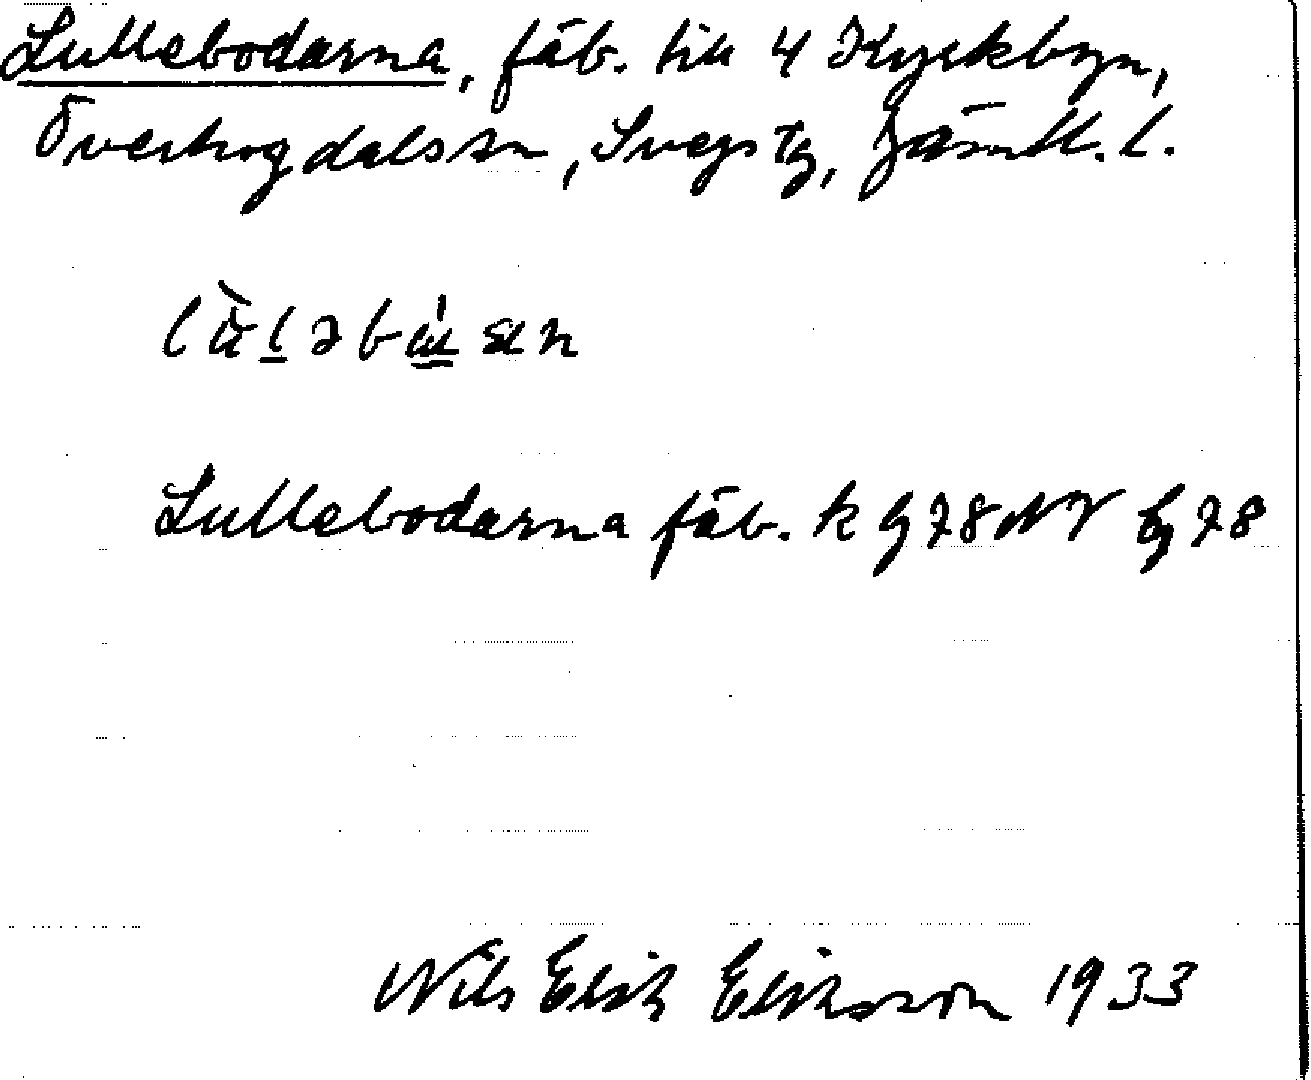 Lullebodarna, fäb. till 4 Kyrkbyn,
Överhogdals sn, Svegs tg, Jämtl. l.
Lullebodarna fäb. k g 78 NV
Nils Erik Eriksson 1933